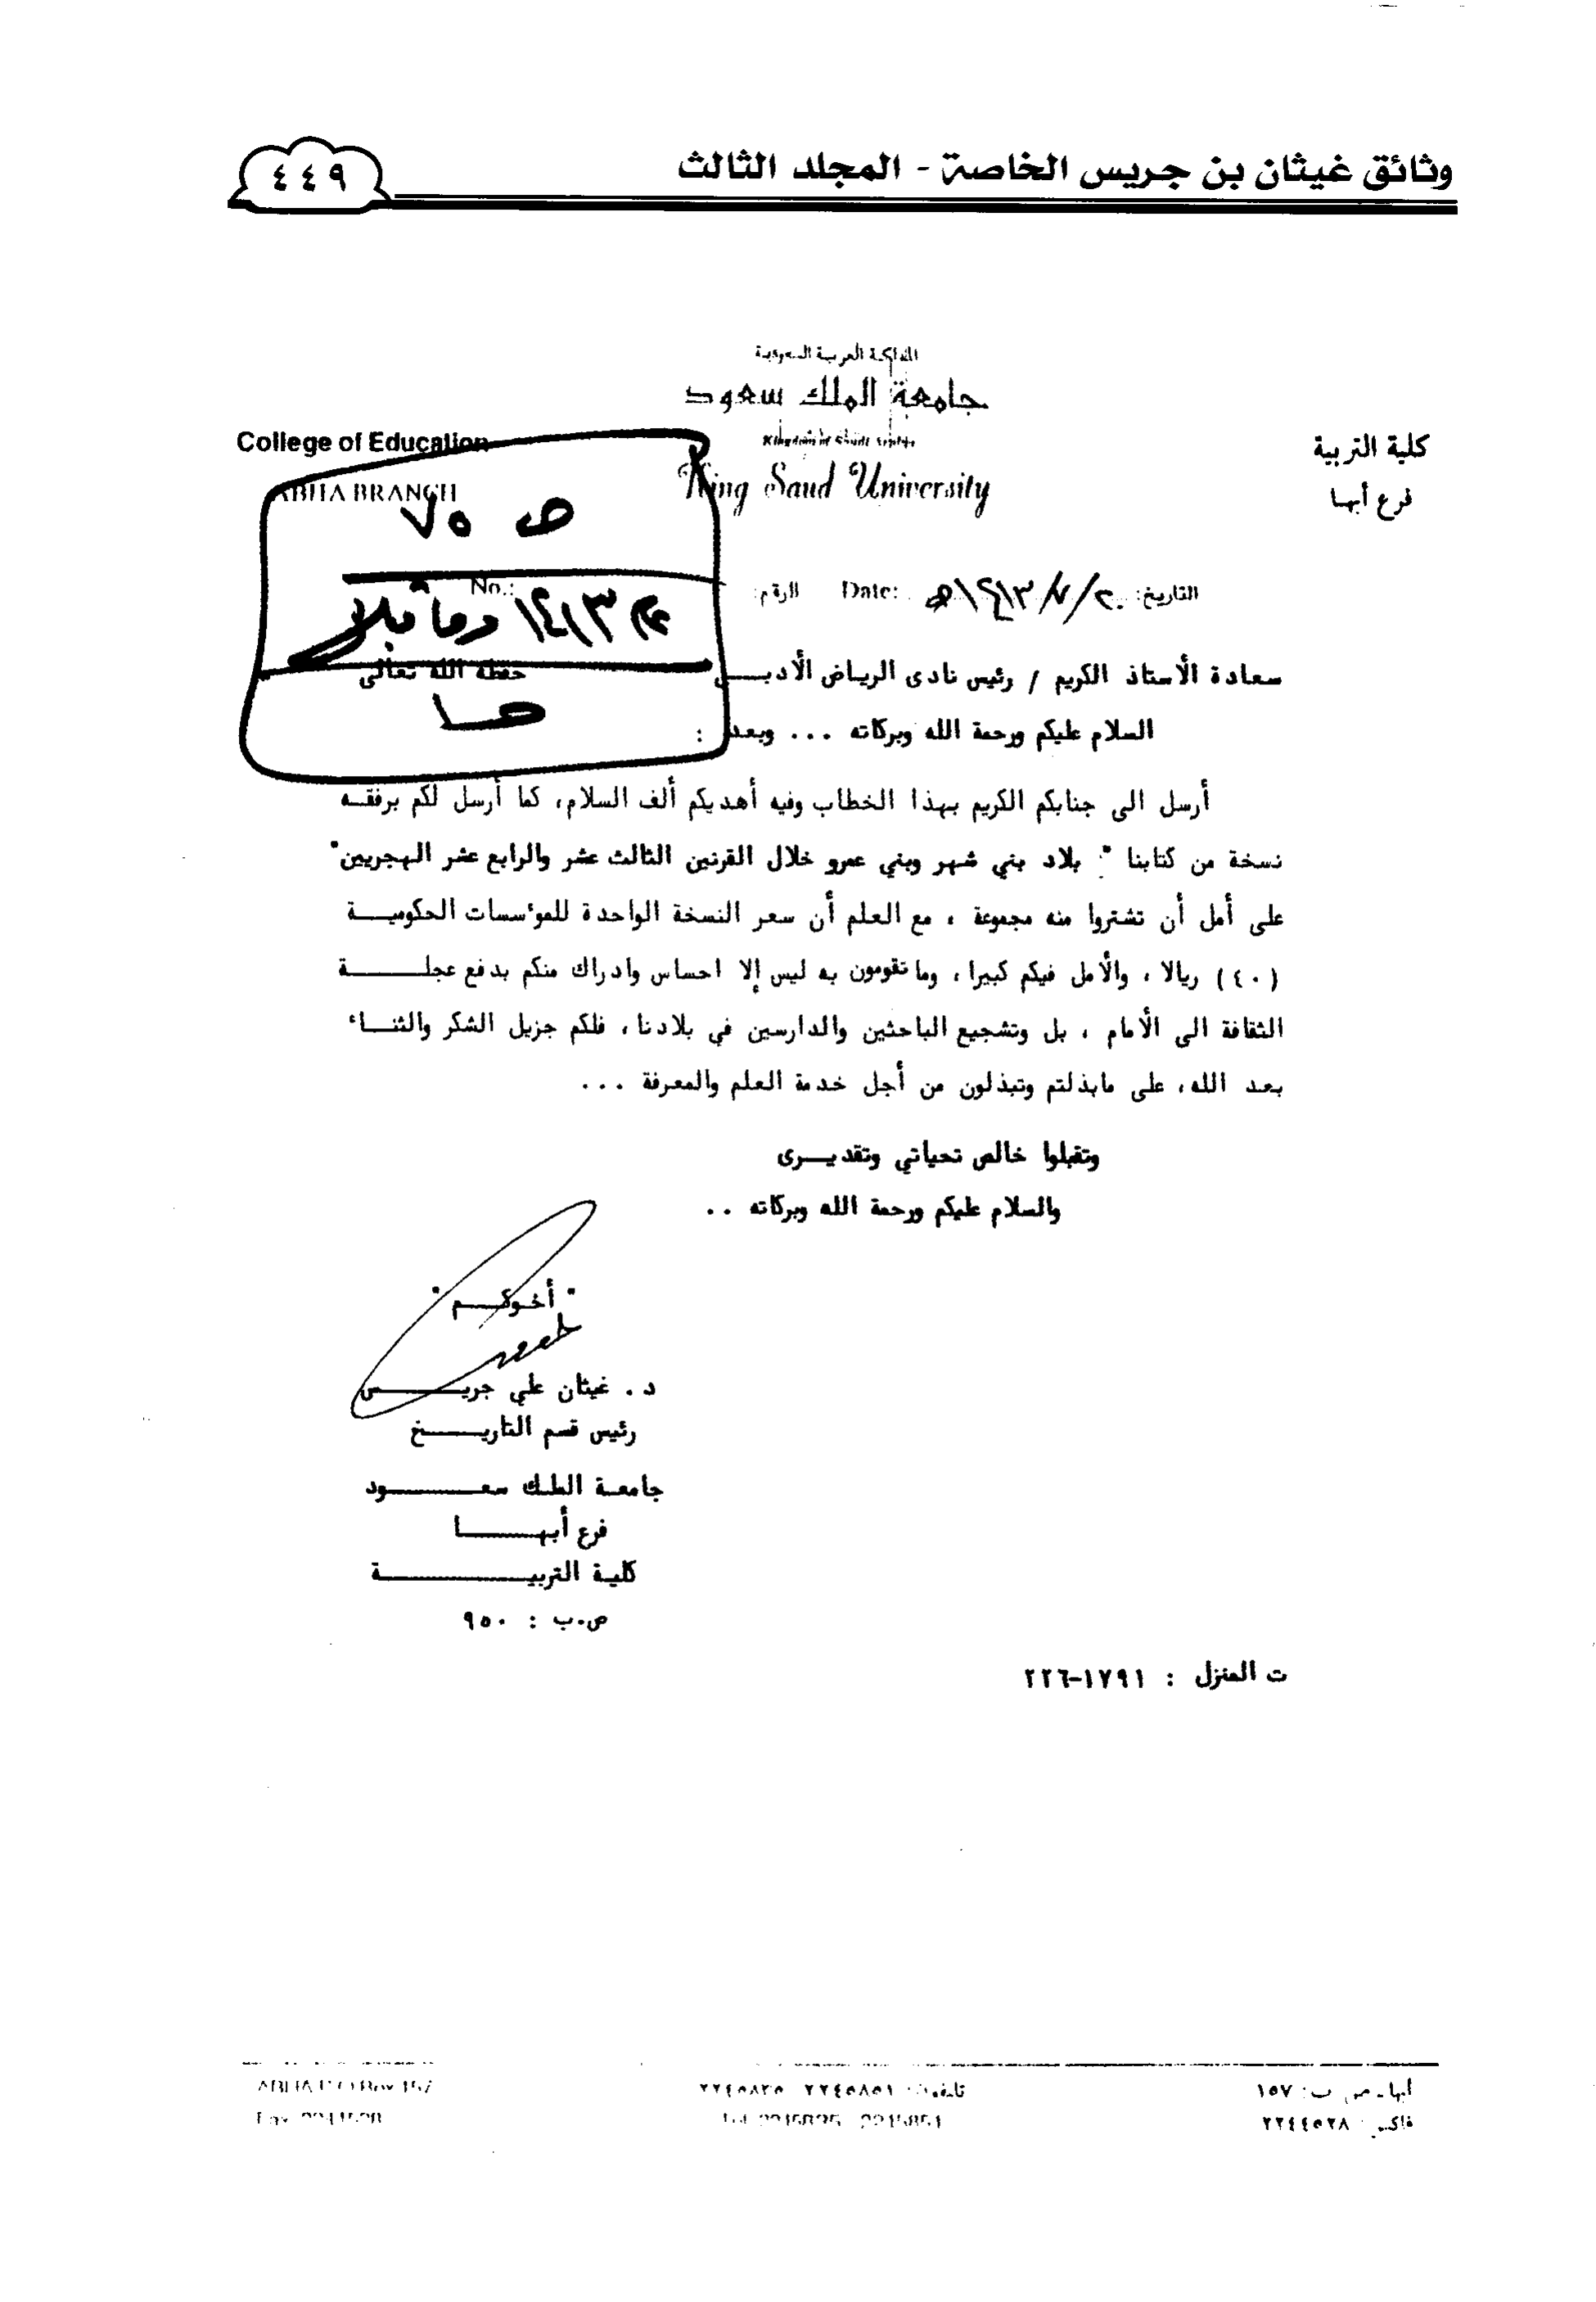 وثائق غيثان بن جريس الخاصة - المجلد الثالث
٤٤٩
المملكة العربية السعودية
جامعة الملك سعود
Kingdom of Saudi Arabia
King Saud University
كلية التربية
فرع أبها
College of Education
ABHA BRANCH
ص ٧٥
التاريخ: Date: الرقم: No.:
١٤١٣ وما قبلها
سعادة الأستاذ الكريم / رئيس نادى الرياض الأدبـــي حفظه الله تعالى
السلام عليكم ورحمة الله وبركاته ... وبعد :
أرسل الى جنابكم الكريم بهذا الخطاب وفيه أهديكم ألف السلام، كما أرسل لكم برفقـــه
نسخة من كتابنا " بلاد بني شهر وبني عمرو خلال القرنين الثالث عشر والرابع عشر الهجريين"
على أمل أن تشتروا منه مجموعة ، مع العلم أن سعر النسخة الواحدة للموءسسات الحكوميـــة
(٤٠) ريالا ، والأمل فيكم كبيرا ، وما تقومون به ليس إلا احساس وادراك منكم بدفع عجلـــة
الثقافة الى الأمام ، بل وتشجيع الباحثين والدارسين في بلادنا ، فلكم جزيل الشكر والثنـــاء
بعد الله، على مابذلتم وتبذلون من أجل خدمة العلم والمعرفة ...
وتقبلوا خالص تحياتي وتقديـــرى
والسلام عليكم ورحمة الله وبركاته ..
" أخوكـــم "
د . غيثان علي جريـــس
رئيس قسم التاريـــخ
جامعة الملك سعـــود
فرع أبهـــا
كلية التربيـــة
ص.ب : ٩٥٠
ت المنزل : ١٧٩١-٢٢٦
أبها ـ ص ب: ١٥٧
فاكس: ٢٢٤٤٥٢٨
تلفون: ٢٢٤٥٨٥١ - ٢٢٤٥٨٢٥
ABHA P.O.Box 157